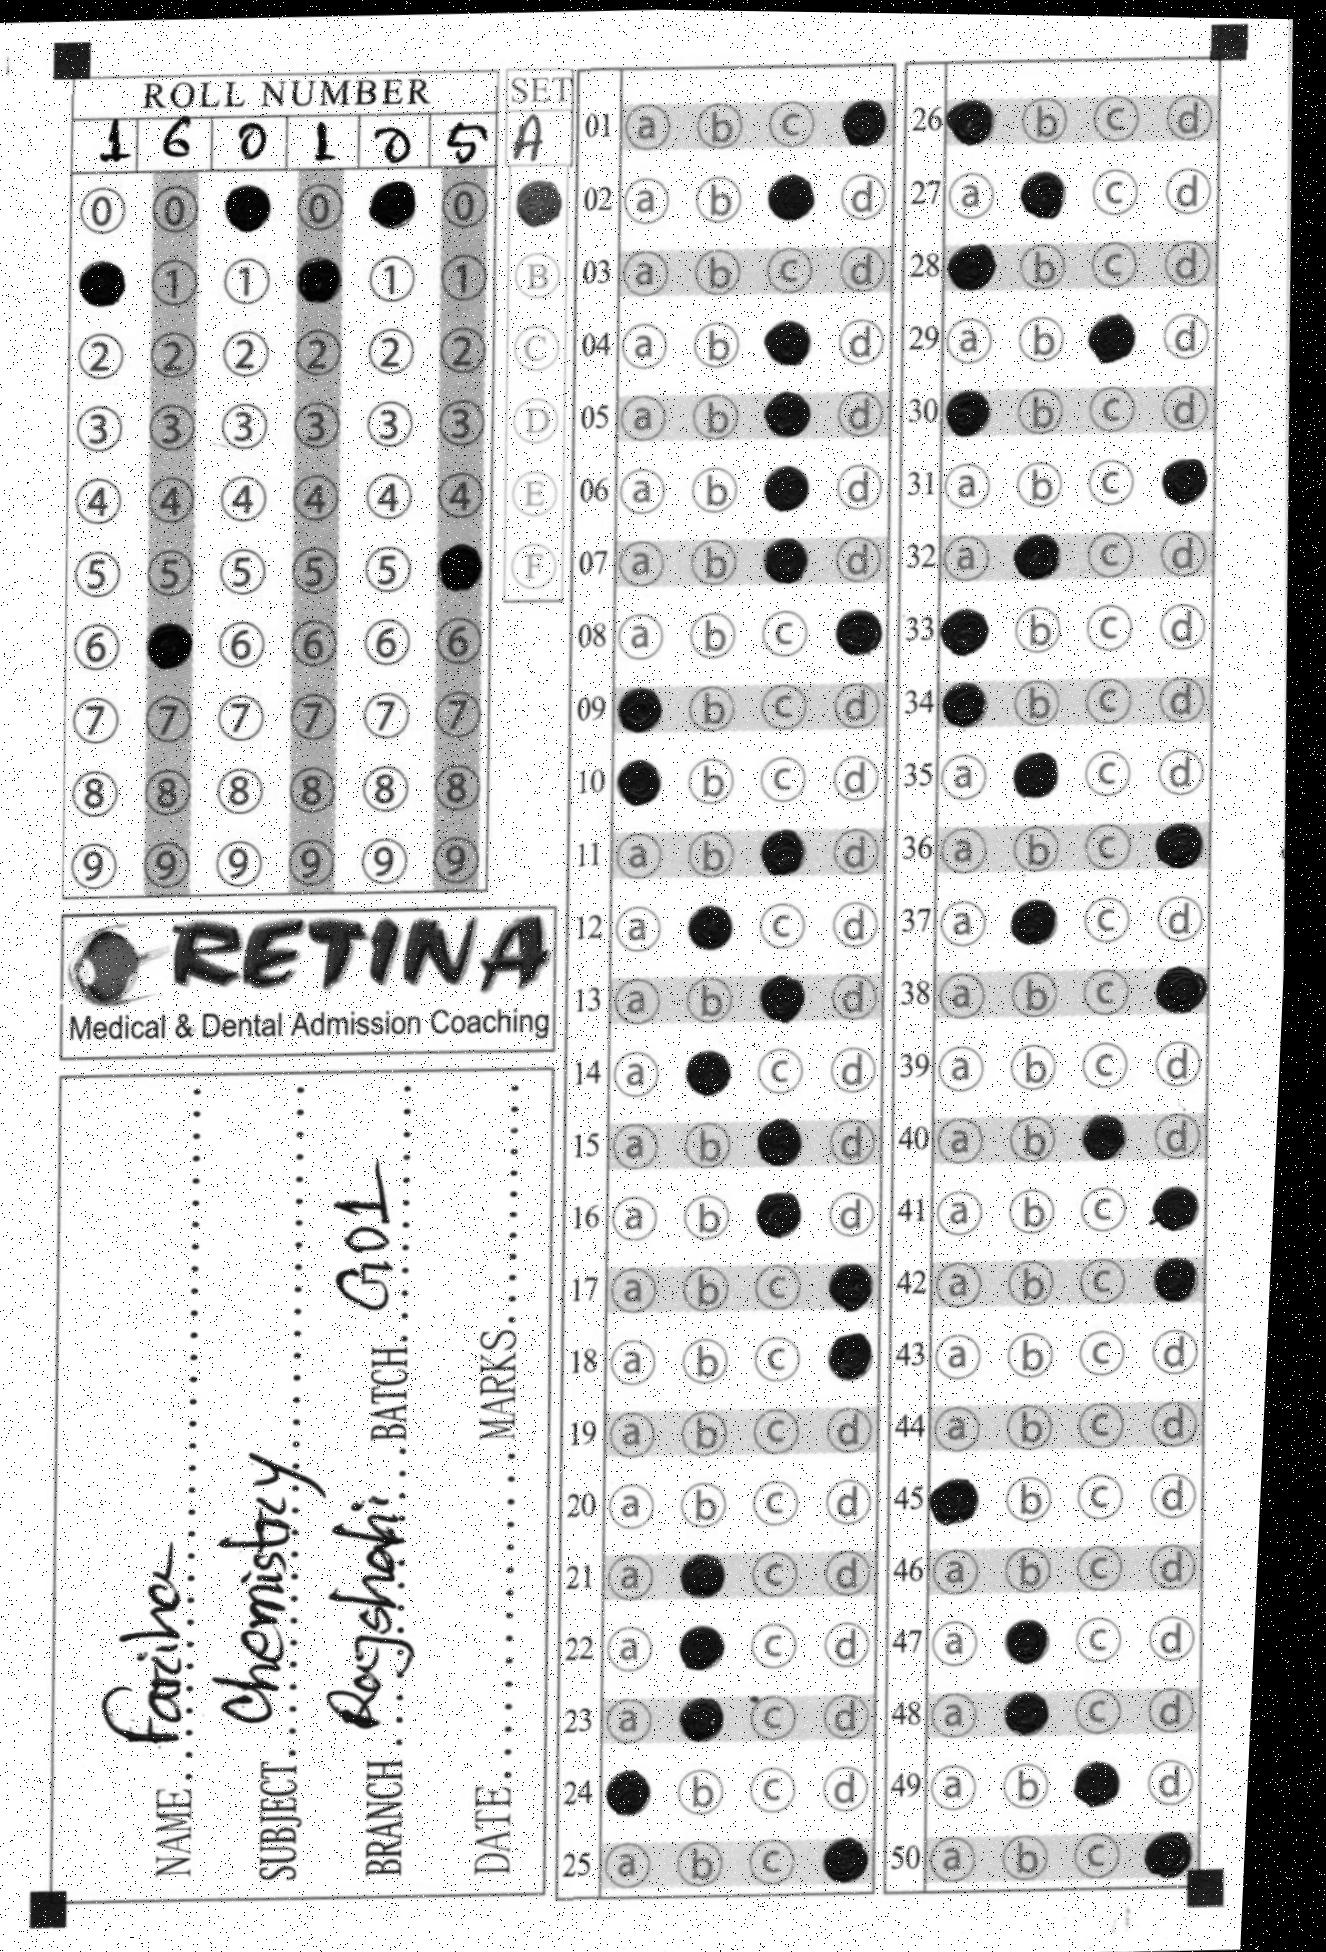 ROLL NUMBER
1 6 0 1 0 5
0 0 0 0
1 1 1 1
2 2 2 2 2 2
3 3 3 3 3 3
4 4 4 4 4 4
5 5 5 5 5
6 6 6 6 6
7 7 7 7 7 7
8 8 8 8 8 8
9 9 9 9 9 9
SET
A
B
C
D
E
F
RETINA
Medical & Dental Admission Coaching
NAME Fariha
SUBJECT Chemistry
BRANCH Rajshahi BATCH G01
DATE MARKS
01 a b c
02 a b d
03 a b c d
04 a b d
05 a b d
06 a b d
07 a b d
08 a b c
09 b c d
10 b c d
11 a b d
12 a c d
13 a b d
14 a c d
15 a b d
16 a b d
17 a b c
18 a b c
19 a b c d
20 a b c d
21 a c d
22 a c d
23 a c d
24 b c d
25 a b c
26 b c d
27 a c d
28 b c d
29 a b d
30 b c d
31 a b c
32 a c d
33 b c d
34 b c d
35 a c d
36 a b c
37 a c d
38 a b c
39 a b c d
40 a b d
41 a b c
42 a b c
43 a b c d
44 a b c d
45 b c d
46 a b c d
47 a c d
48 a c d
49 a b d
50 a b c